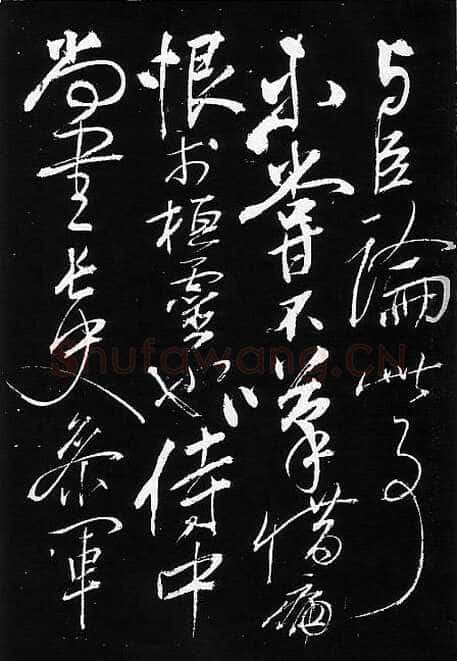 与臣論此事
未嘗不嘆惜痛
恨於桓靈也侍中
尚書長史參軍
shufawang.CN